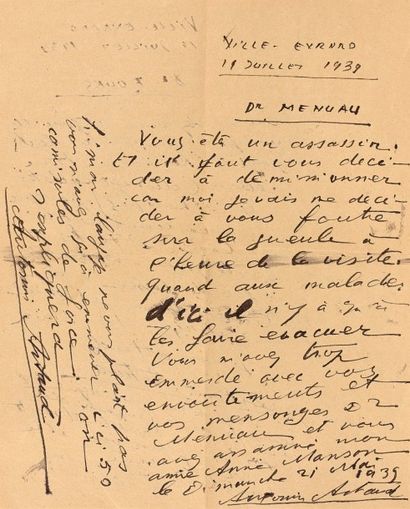 VILLE-EVRARD
11 JUILLET 1939
Dr MENUAU
Vous êtes un assassin.
Et il faut vous déci-
der à démissionner
car moi je vais me déci-
der à vous foutre
sur la gueule à
l'heure de la visite.
quand aux malades
d'ici il n'y a qu'à
les faire évacuer
Vous m'avez trop
emmerdé avec vos
envoûtements et
vos mensonges Dr
Menuau et vous
avez assassiné mon
amie Anne Manson
le Dimanche 21 Mai
1939
Antonin Artaud
Si mon langage ne vous plaît pas
vous n'avez qu'à emmener ici 50
camisoles de force on
s'expliquera
Antonin Artaud